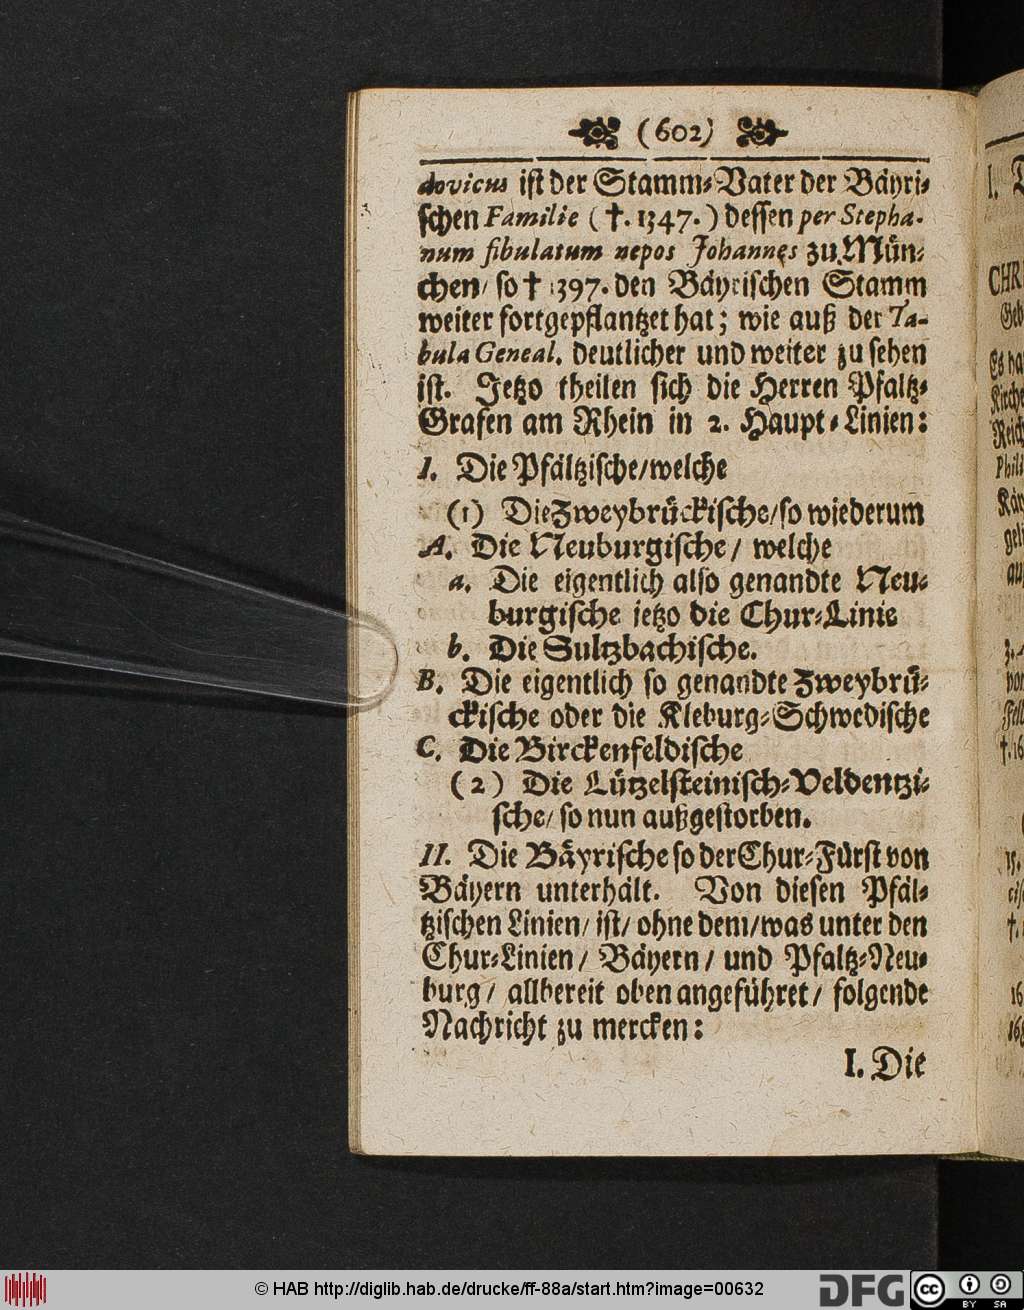 (602)
dovicus ist der Stamm-Vater der Bäyri-
schen Familie (†. 1347.) dessen per Stepha-
num fibulatum nepos Johannes zu Mün-
chen/ so † 1397. den Bäyrischen Stamm
weiter fortgepflantzet hat; wie auß der Ta-
bula Geneal. deutlicher und weiter zu sehen
ist. Jetzo theilen sich die Herren Pfaltz-
Grafen am Rhein in 2. Haupt-Linien:
I. Die Pfältzische/welche
(1) Die Zweybrückische/so wiederum
A. Die Neuburgische/ welche
a. Die eigentlich also genandte Neu-
burgische jetzo die Chur-Linie
b. Die Sultzbachische.
B. Die eigentlich so genandte Zweybrü-
ckische oder die Kleburg-Schwedische
C. Die Birckenfeldische
(2) Die Lützelsteinisch-Veldentzi-
sche/ so nun außgestorben.
II. Die Bäyrische so der Chur-Fürst von
Bäyern unterhält. Von diesen Pfäl-
tzischen Linien/ ist/ ohne dem/was unter den
Chur-Linien/ Bäyern/ und Pfaltz-Neu-
burg/ allbereit oben angeführet/ folgende
Nachricht zu mercken:
I. Die
I.
CHRI
Geb
Es ha
Kirche
Reich
© HAB http://diglib.hab.de/drucke/ff-88a/start.htm?image=00632
DFG
cc
BY SA